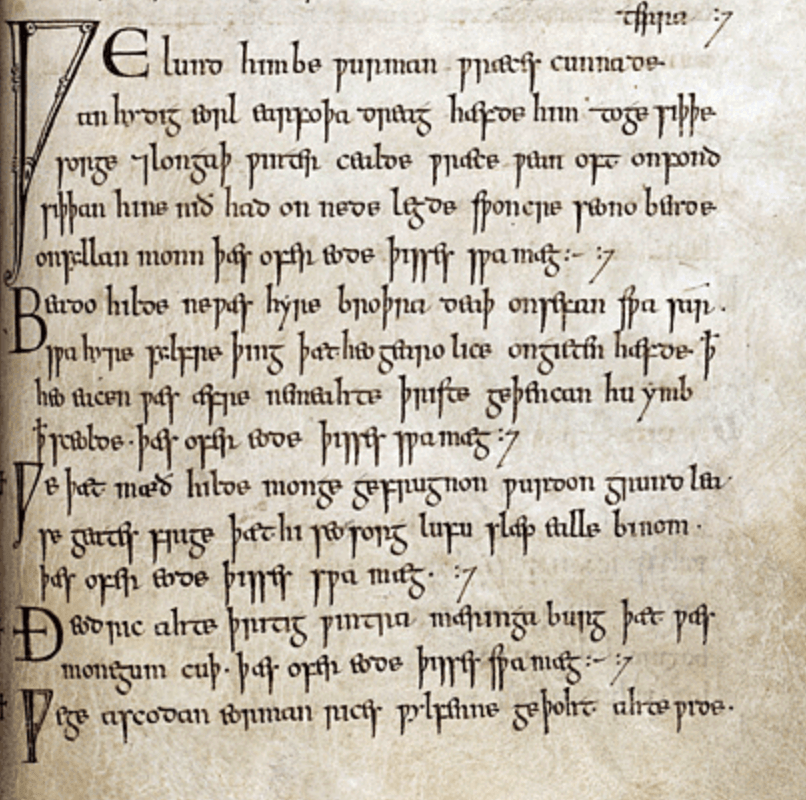 terra :7
Ƿelund him be ƿurman ƿræces cunnade
an hydig eorl earfoþa dreag hæfde him to ge siþþe
sorge ⁊ longaþ ƿinter cealde ƿræce ƿean oft onfond
siþþan hine nið had on nede legde sƿoncre seono bende
onsyllan monn þæs ofer eode þisses sƿa mæg:- :7
Beado hilde ne ƿæs hyre broþra deaþ on sefan sƿa sar.
sƿa hyre sylfre þing þæt heo gearo lice ongieten hæfde ꝥ
heo eacen ƿæs æfre ne meahte þriste geþencan hu ymb
ꝥ sceolde. þæs ofer eode þisses sƿa mæg :7
Ƿe þæt mæð hilde monge gefrugnon ƿurdon grund lea
se geates frige þæt hi seo sorg lufu slæp ealle binom.
þæs ofer eode þisses sƿa mæg. :7
Ðeodric ahte þritig ƿintra mæringa burg þæt ƿæs
monegum cuþ. þæs ofer eode þisses sƿa mæg:- :7
Ƿe ge ascodan eorman rices ƿylfenne geþoht ahte ƿide.